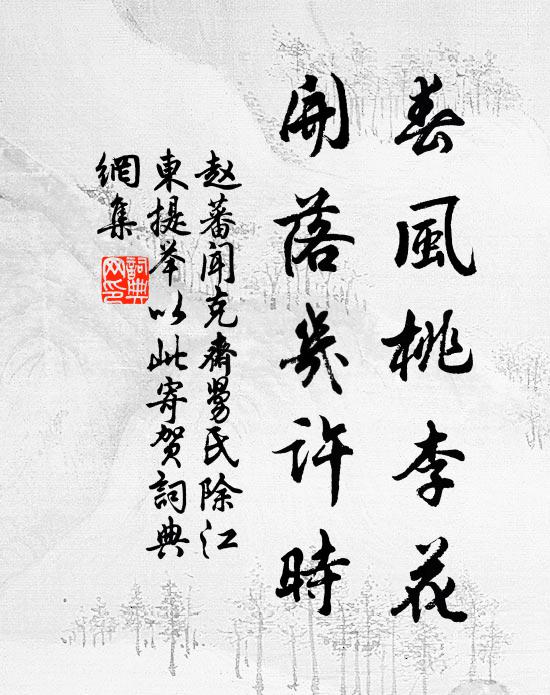 春風桃李花
開落幾許時
赵蕃闻克齋舅氏除江
東提举以此寄贺詞典
網集
詞典
网印